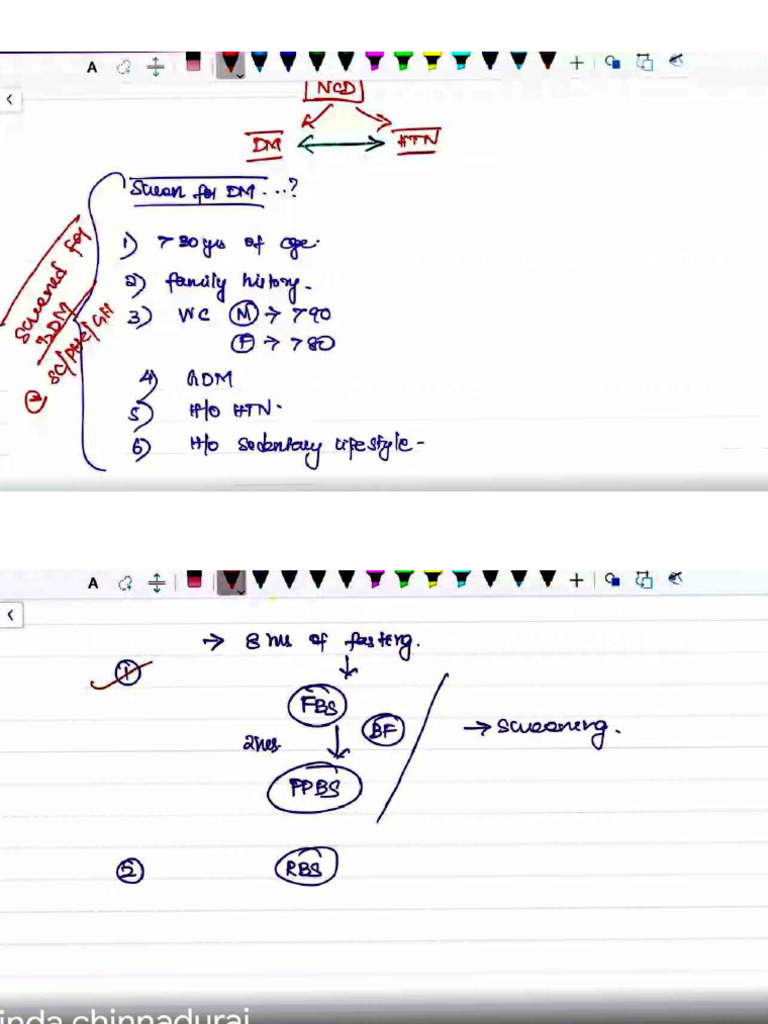 A
NCD
DM HTN
Screen for DM...?
1) > 30 yrs of age.
2) family history.
3) WC M → > 90
F → > 80
4) GDM
5) H/o HTN.
6) H/o sedentary lifestyle -
Screened for
DM
SC/PHC/GH
A
→ 8 hrs of fasting.
1
FBS
2hrs. BF → screening.
PPBS
RBS
inda chinnadurai